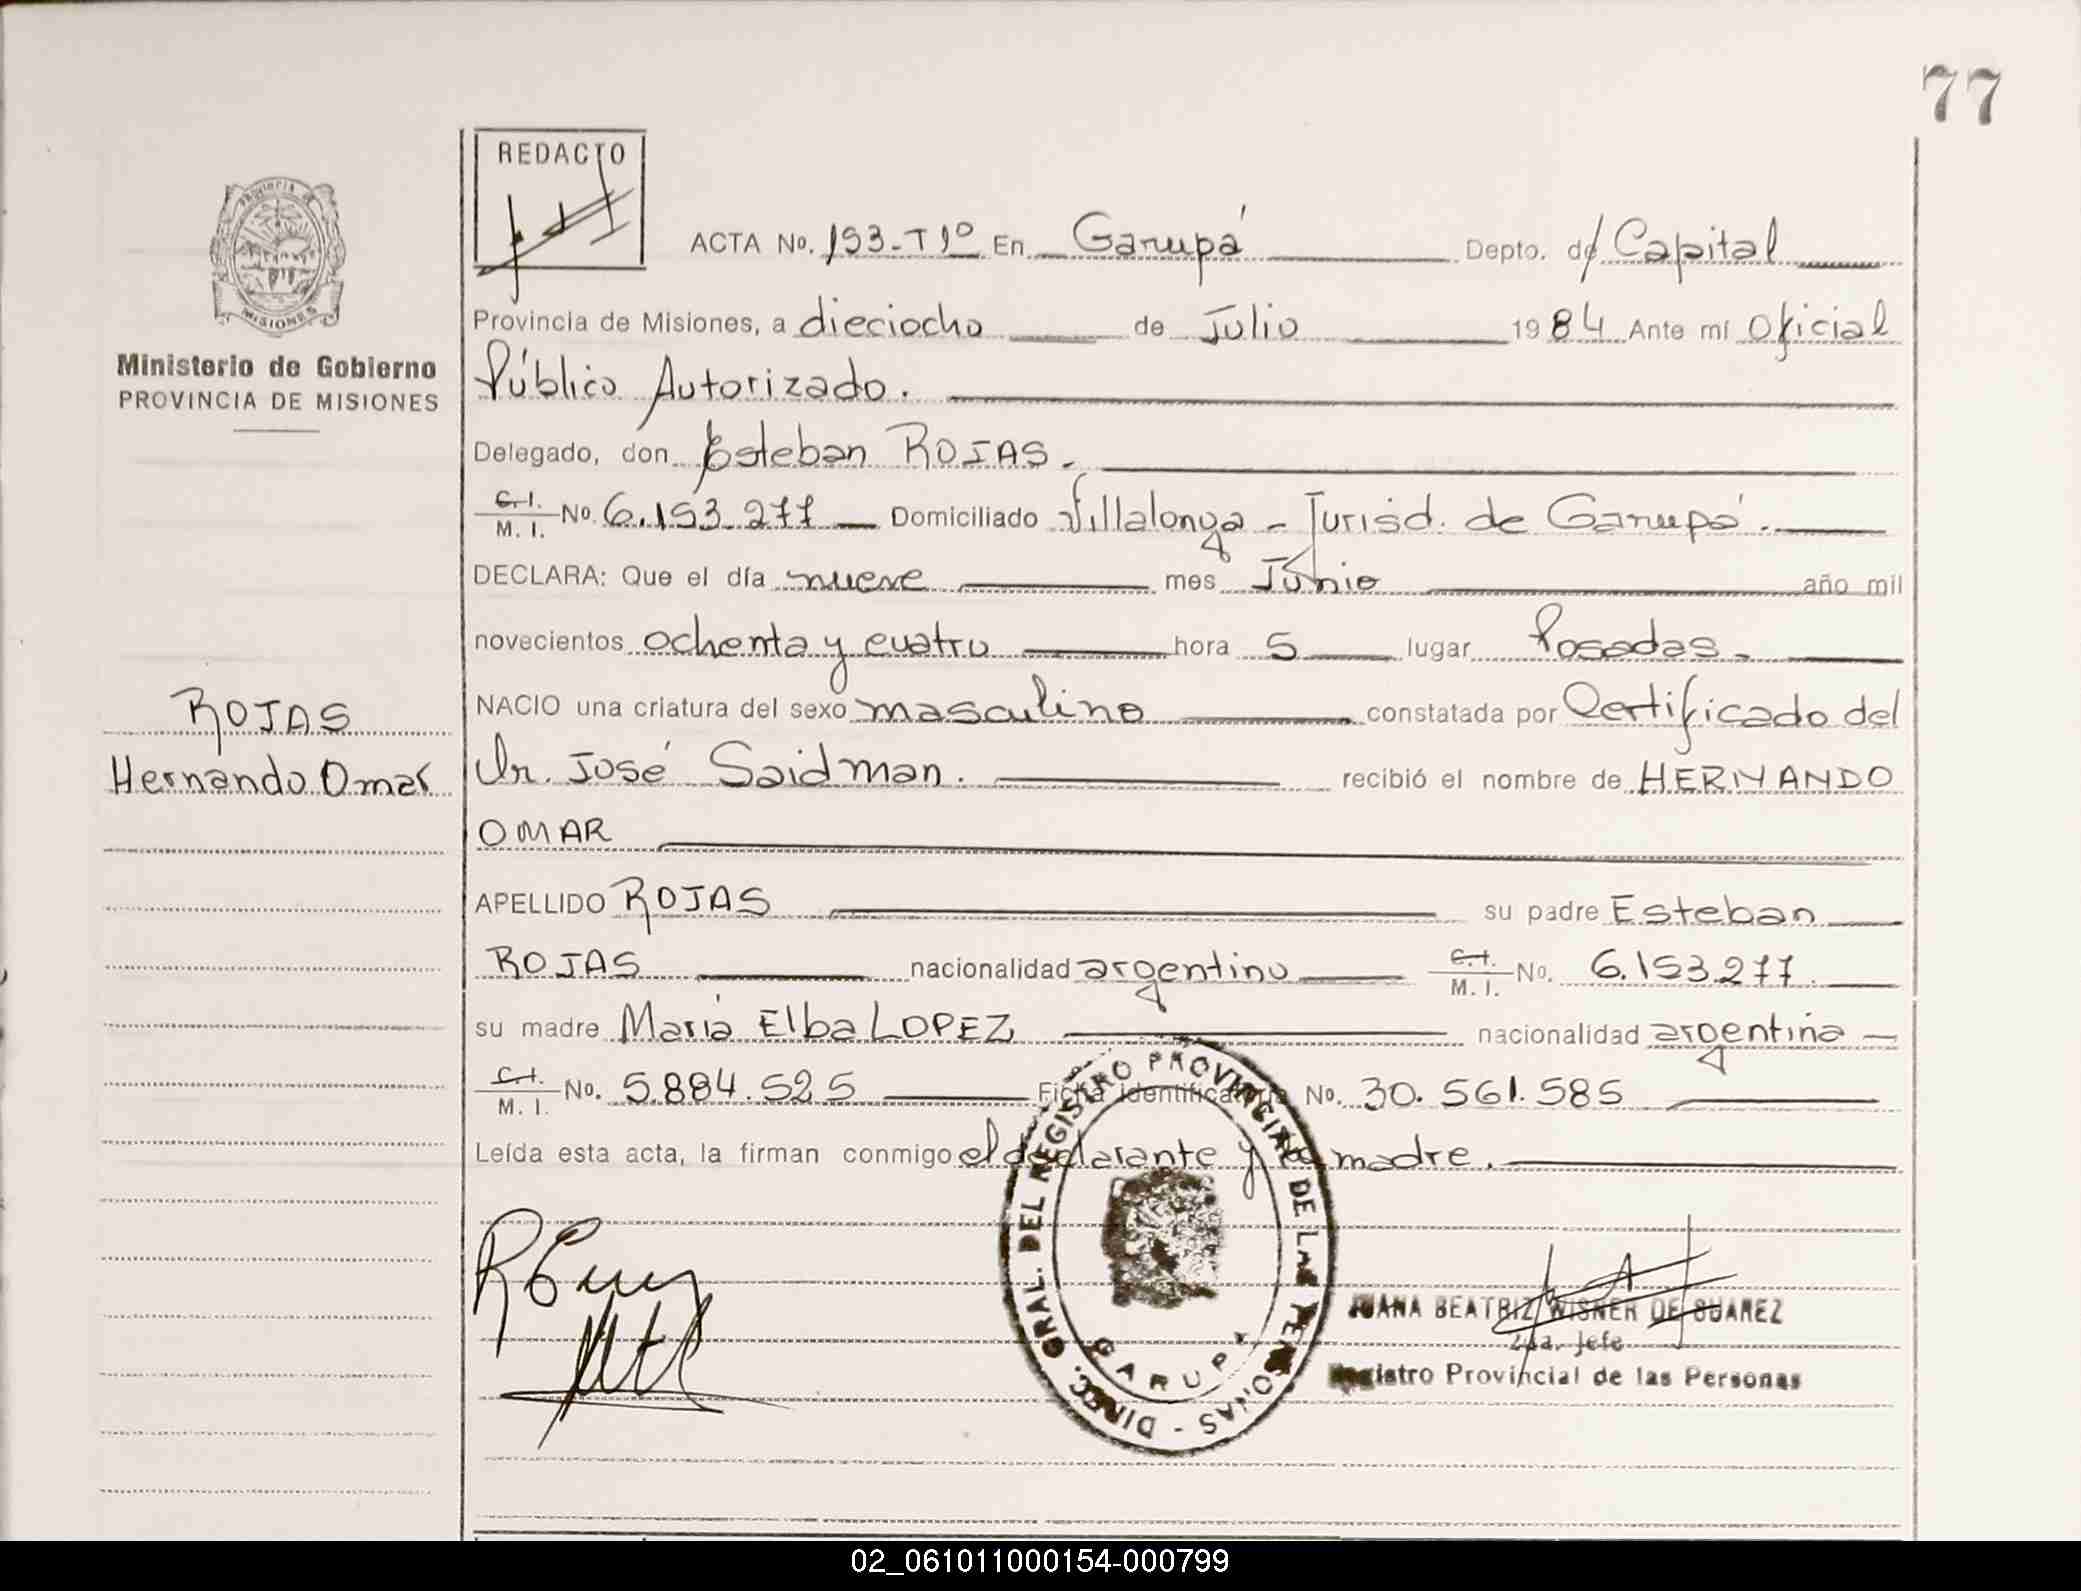 77
REDACTO
Provincia de
MISIONES
Ministerio de Gobierno
PROVINCIA DE MISIONES
ACTA No. 193-T1º En Garupá Depto. de Capital
Provincia de Misiones, a dieciocho de Julio 1984 Ante mí Oficial
Público Autorizado.
Delegado, don Esteban ROJAS.
C.I. M. I. No. 6.153.277 Domiciliado Villalonga - Jurisd. de Garupá.
DECLARA: Que el día nueve mes Junio año mil
novecientos ochenta y cuatro hora 5 lugar Posadas.
NACIO una criatura del sexo masculino constatada por Certificado del
Dr. José Saidman. recibió el nombre de HERNANDO
OMAR
ROJAS
Hernando Omar
APELLIDO ROJAS su padre Esteban
ROJAS nacionalidad argentino C.I. M. I. No. 6.153.277.
su madre María Elba LOPEZ nacionalidad argentina
C.I. M. I. No. 5.884.525 Ficha Identificatoria No. 30.561.585
Leída esta acta, la firman conmigo el declarante y la madre.
DIREC. GRAL. DEL REGISTRO PROVINCIAL DE LAS PERSONAS -
GARUPA
JUANA BEATRIZ WISNER DE SUAREZ
2da. Jefe
Registro Provincial de las Personas
02_061011000154-000799